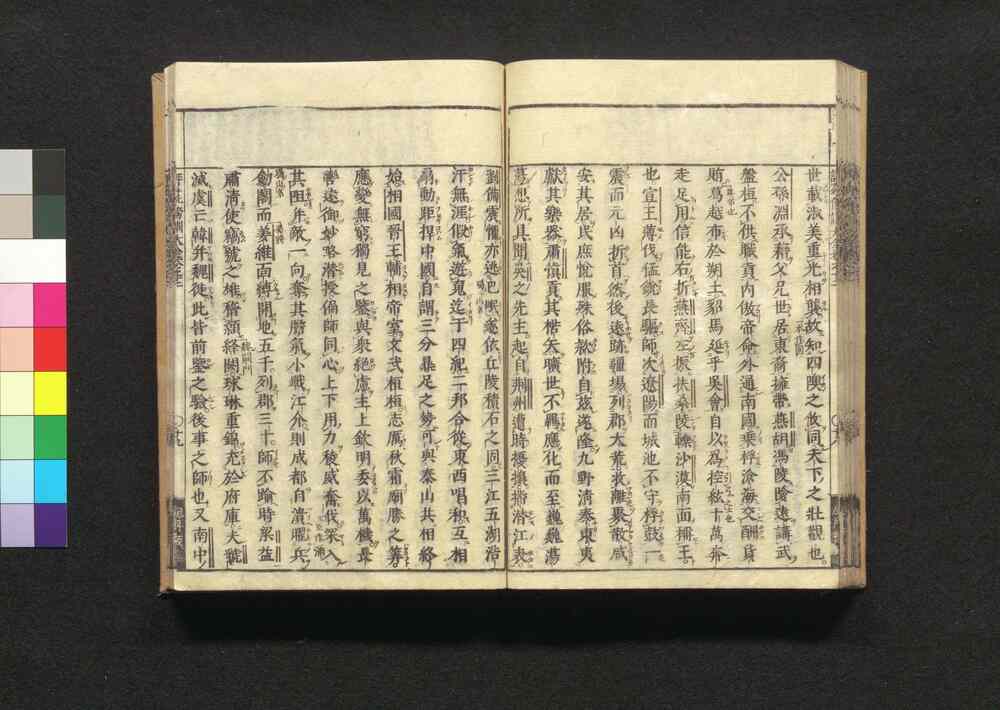 世載淑美重光相襲故知四隩之攸同天下之壯觀也
公孫淵承藉父兄世居東裔擁帶燕胡馮陵險遠講武
盤桓不供職貢內傲帝命外通南國乘桴滄海交酬貨
賄葛越布於朔土貂馬延乎吳會自以為控絃十萬奔
走足用信能右折燕齊左振扶桑陵轢沙漠南面稱王
也宣王薄伐猛銳長驅師次遼陽而城池不守桴鼓一
震而元凶折首然後遠跡疆場列郡大荒收離聚散咸
安其居民庶悅服殊俗款附自茲遂隆九野清泰東夷
獻其樂器肅慎貢其楛矢曠世不羈應化而至巍巍蕩
蕩想所具聞吳之先主起自荊州遭時擾攘播潛江表
劉備震懼亦逃巴岷遂依丘陵積石之固三江五湖浩
汗無涯假氣遊魂迄于四紀二邦合從東西唱和互相
扇動距捍中國自謂三分鼎足之勢可與泰山共相終
始相國晉王輔相帝室文武桓桓志厲秋霜廟勝之筭
應變無窮獨見之鑒與衆絕慮主上欽明委以萬機長
轡遠御妙略潛授偏師同心上下用力稜威奮伐罙入
其阻并敵一向奪其膽氣小戰江介則成都自潰曜兵
劍閣而姜維面縛開地五千列郡三十師不踰時梁益
肅清使竊號之雄稽顙絳闕球琳重錦充於府庫夫虢
滅虞亡韓并魏徙此皆前鑒之驗後事之師也又南中